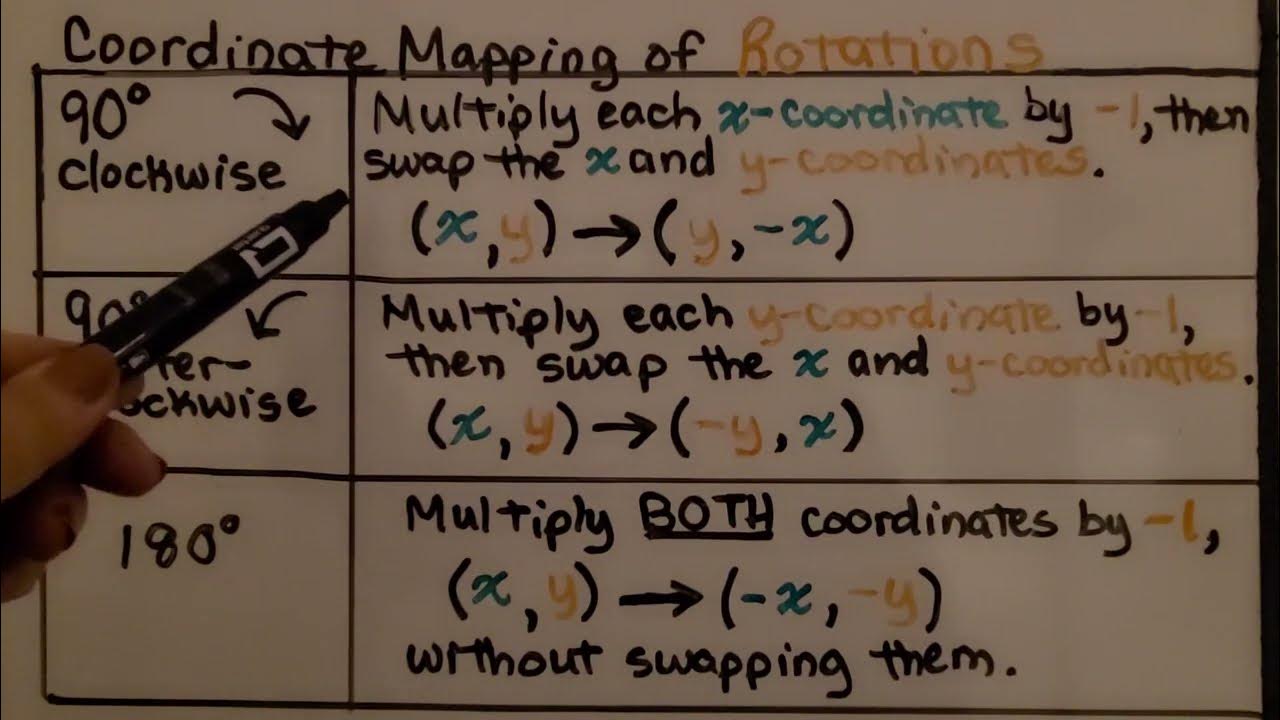 Coordinate Mapping of Rotations
90°
clockwise
Multiply each x-coordinate by -1, then
swap the x and y-coordinates.
(x, y) → (y, -x)
90°
ter-
ockwise
Multiply each y-coordinate by -1,
then swap the x and y-coordinates.
(x, y) → (-y, x)
180°
Multiply BOTH coordinates by -1,
(x, y) → (-x, -y)
without swapping them.